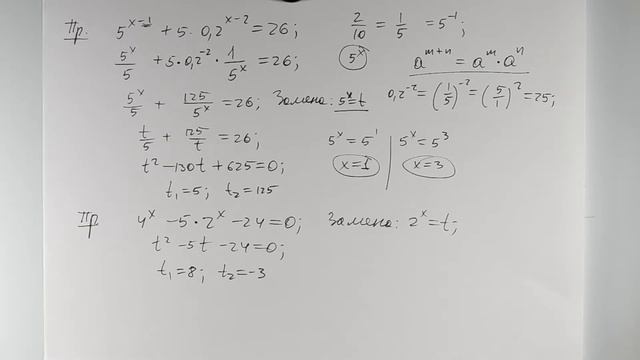 Пр. 5^{x-1} + 5·0,2^{x-2} = 26; 2/10 = 1/5 = 5^{-1};
5^x/5 + 5·0,2^{-2}·1/5^x = 26; 5^x a^{m+n} = a^m·a^n
5^x/5 + 125/5^x = 26; Замена: 5^x = t 0,2^{-2} = (1/5)^{-2} = (5/1)^2 = 25;
t/5 + 125/t = 26; 5^x = 5^1 | 5^x = 5^3
t^2 - 130t + 625 = 0; x = 1 | x = 3
t_1 = 5; t_2 = 125
Пр 4^x - 5·2^x - 24 = 0; Замена: 2^x = t;
t^2 - 5t - 24 = 0;
t_1 = 8; t_2 = -3